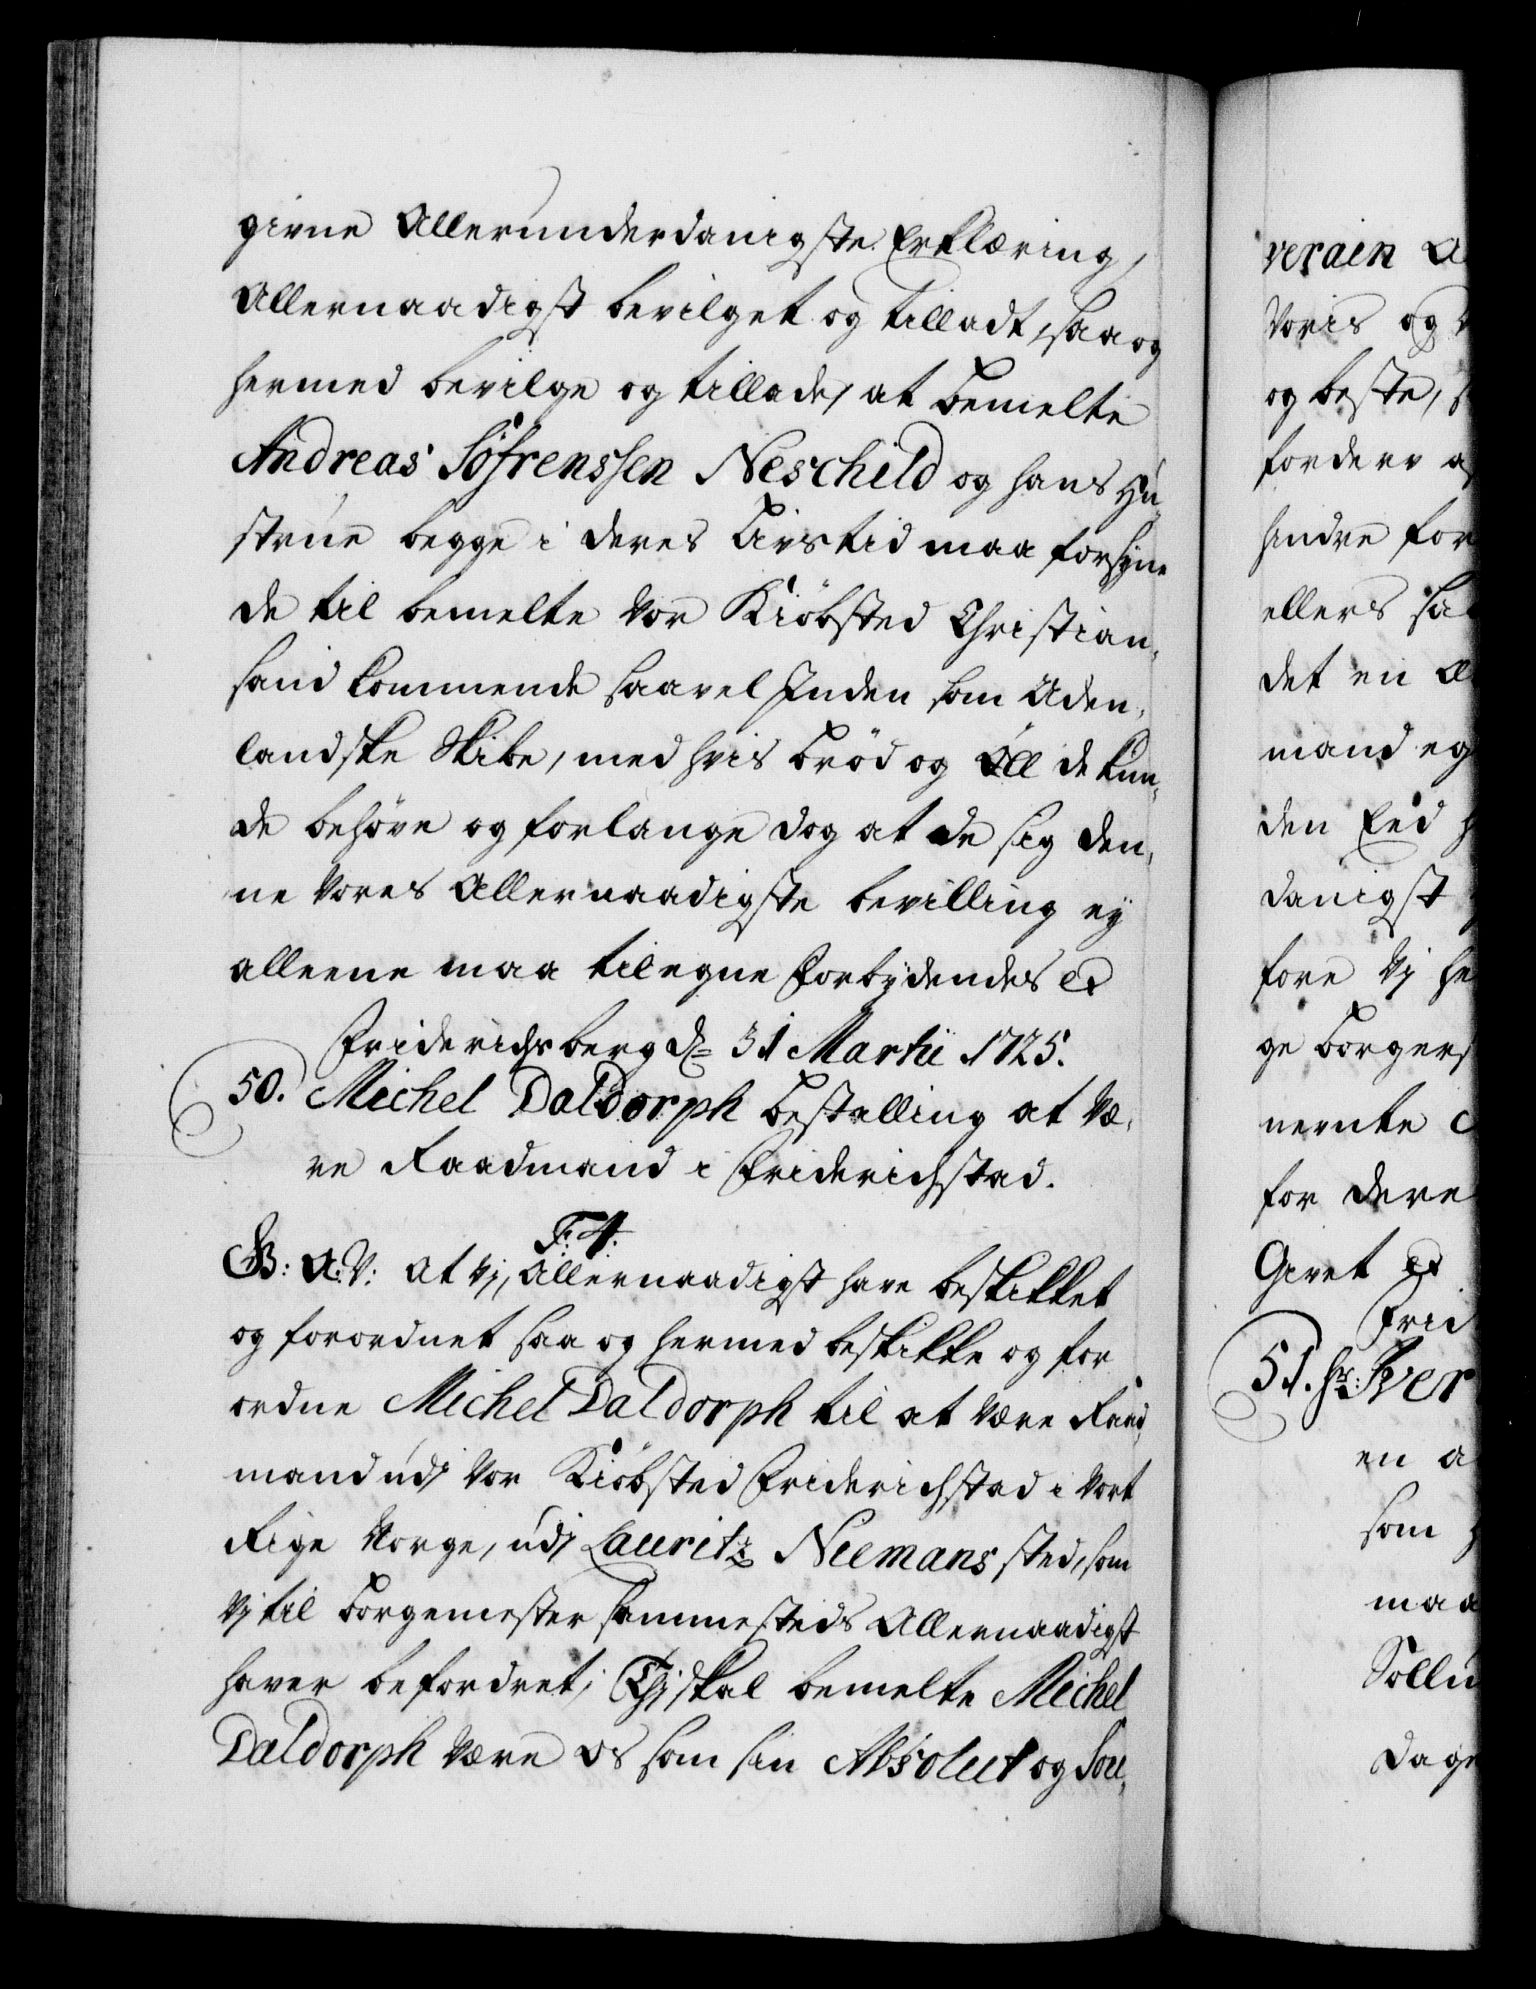 givne Allerunderdanigste Erklæring,
Allernaadigst bevilget og tilladt, saa og
hermed bevilge og tillade, at bemelte
Andreas Söfrenssen Neschild og hans Hu,
strue begge i deres Livs tid maa forsyne
de til bemelte vor Kiöbsted Christian,
sand kommende saavel Inden som Uden,
landske Skibe, med hvis bröd og Öll de kun,
de behöve og forlange dog at de sig den,
ne vores Allernaadigste bevilling ey
alleene maa tilegne Forbydendes et
Friderichsberg d= 31 Martii 1725.
50. Michel Daldorph bestalling at væ,
re Raadmand i Friderichstad.
F: 4:
G: A: V: at Vj, Allernaadigst have beskikket
og forordnet saa og hermed beskikke og for
ordne Michel Daldorph til at være Raad,
mand udj vor Kiöbsted Friderichstad i vort
Rige Norge, udj Lauritz Niemans sted, som
Vj til borgemester sammesteds Allernaadigst
haver befordret; Thj skal bemelte Michel
Daldorph være os som sin Absolut og Sou,
verain A
voris og
og beste,
forderv a
hindre for
ellers saa
det en
mand eg
den Eed
danigst
fore Vj he
ge borgers
nernte
for dere
Givet et
Frid
51. hr: Iver
en a
som
maa
Söllu
dage